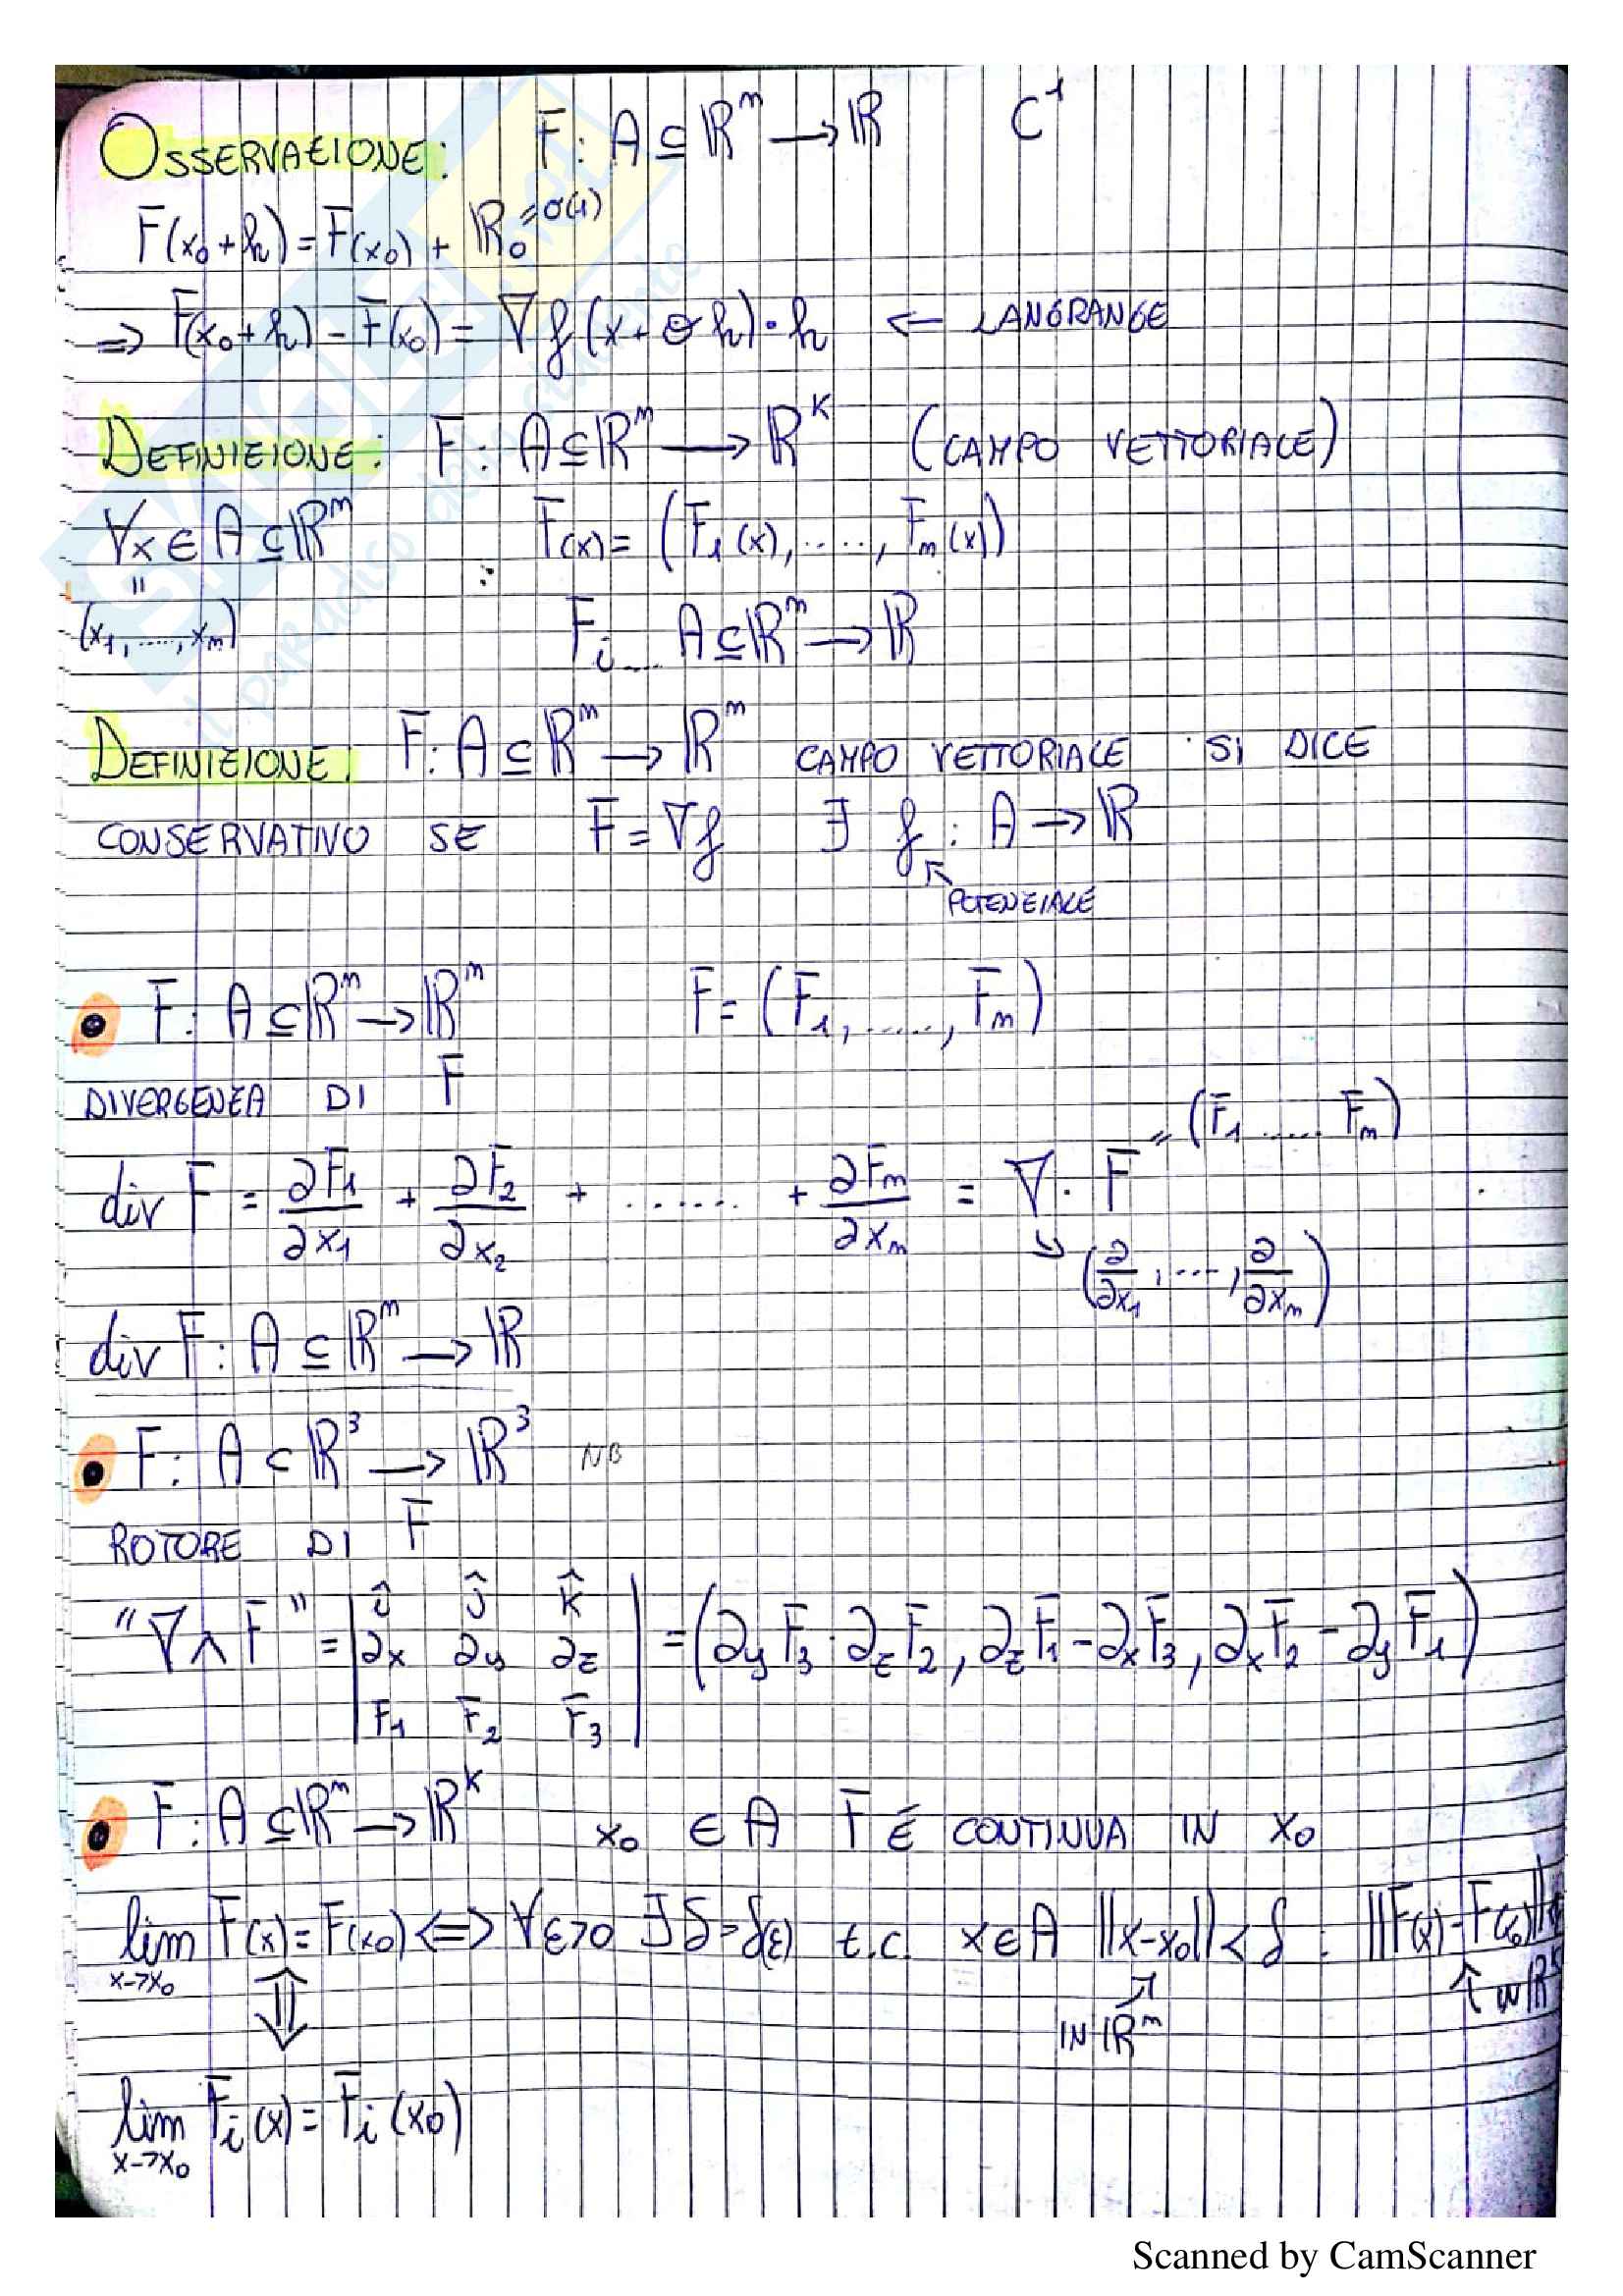 OSSERVAZIONE: F: A ⊆ ℝⁿ → ℝ C¹
F(x₀+h) = F(x₀) + ℝ₀ = o(1)
⇒ F(x₀+h) - F(x₀) = ∇f(x+θh)·h ← LANGRANGE
DEFINIZIONE: F: A ⊆ ℝⁿ → ℝᴷ (CAMPO VETTORIALE)
∀x ∈ A ⊆ ℝⁿ F(x) = (F₁(x), ....., Fₘ(x))
"
(x₁, ....., xₙ) Fᵢ .... A ⊆ ℝⁿ → ℝ
DEFINIZIONE: F: A ⊆ ℝⁿ → ℝⁿ CAMPO VETTORIALE SI DICE
CONSERVATIVO SE F = ∇f ∃ f : A → ℝ
POTENZIALE
• F: A ⊆ ℝⁿ → ℝⁿ F = (F₁, ......, Fₙ)
DIVERGENZA DI F
= (F₁ ..... Fₙ)
div F = ∂F₁/∂x₁ + ∂F₂/∂x₂ + ...... + ∂Fₙ/∂xₙ = ∇· F
(∂/∂x₁, ...., ∂/∂xₙ)
div F: A ⊆ ℝⁿ → ℝ
• F: A ⊂ ℝ³ → ℝ³ NB
ROTORE DI F
"∇ ∧ F" = | î ĵ k̂ |
| ∂x ∂y ∂z | = (∂yF₃ · ∂zF₂, ∂zF₁ - ∂xF₃, ∂xF₂ - ∂yF₁)
| F₁ F₂ F₃ |
• F: A ⊆ ℝⁿ → ℝᴷ x₀ ∈ A F É CONTINUA IN x₀
lim F(x) = F(x₀) ⟺ ∀ε>0 ∃δ=δ(ε) t.c. x∈A ||x-x₀|| < δ : ||F(x)-F(x₀)||<
x→x₀ ⇕ IN ℝⁿ IN ℝᴷ
lim Fᵢ(x) = Fᵢ(x₀)
x→x₀
Scanned by CamScanner